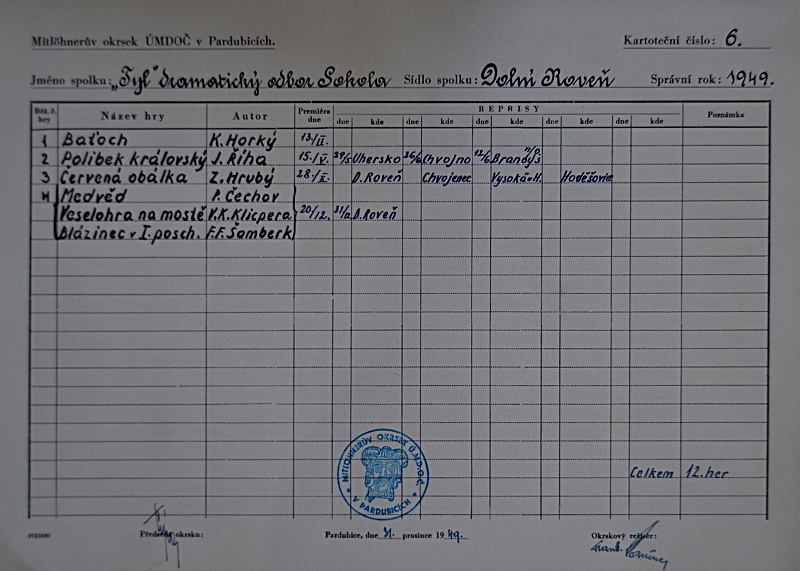 Mitlöhnerův okrsek ÚMDOČ v Pardubicích. Kartoteční číslo: 6.
Jméno spolku: „Tyl" dramatický odbor Sokola Sídlo spolku: Dolní Roveň Správní rok: 1949.
Běž. č. hry Název hry Autor Premiéra dne REPRISY Poznámka
dne kde dne kde dne kde dne kde dne kde
1 Baťoch K. Horký 13/II.
2 Polibek královský J. Říha 15./V. 29/5 Uhersko 26/6 Chvojno 12/6 Brandýs
3 Červená obálka Z. Hrubý 28./X. D. Roveň Chvojenec Vysoká n H. Hoděšovice
4 Medvěd P. Čechov
Veselohra na mostě V. K. Klicpera 20/12. 31/12 D. Roveň
Blázinec v I. posch. F. F. Šamberk
MITLÖHNERŮV OKRSEK Ú.M.D.O.Č. V PARDUBICÍCH
Celkem 12. her
Předseda okrsku: Pardubice, dne 31. prosince 1949. Okrskový režisér: